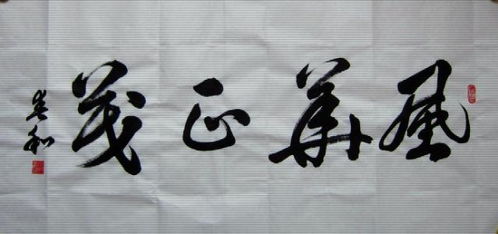 風華正茂
春和